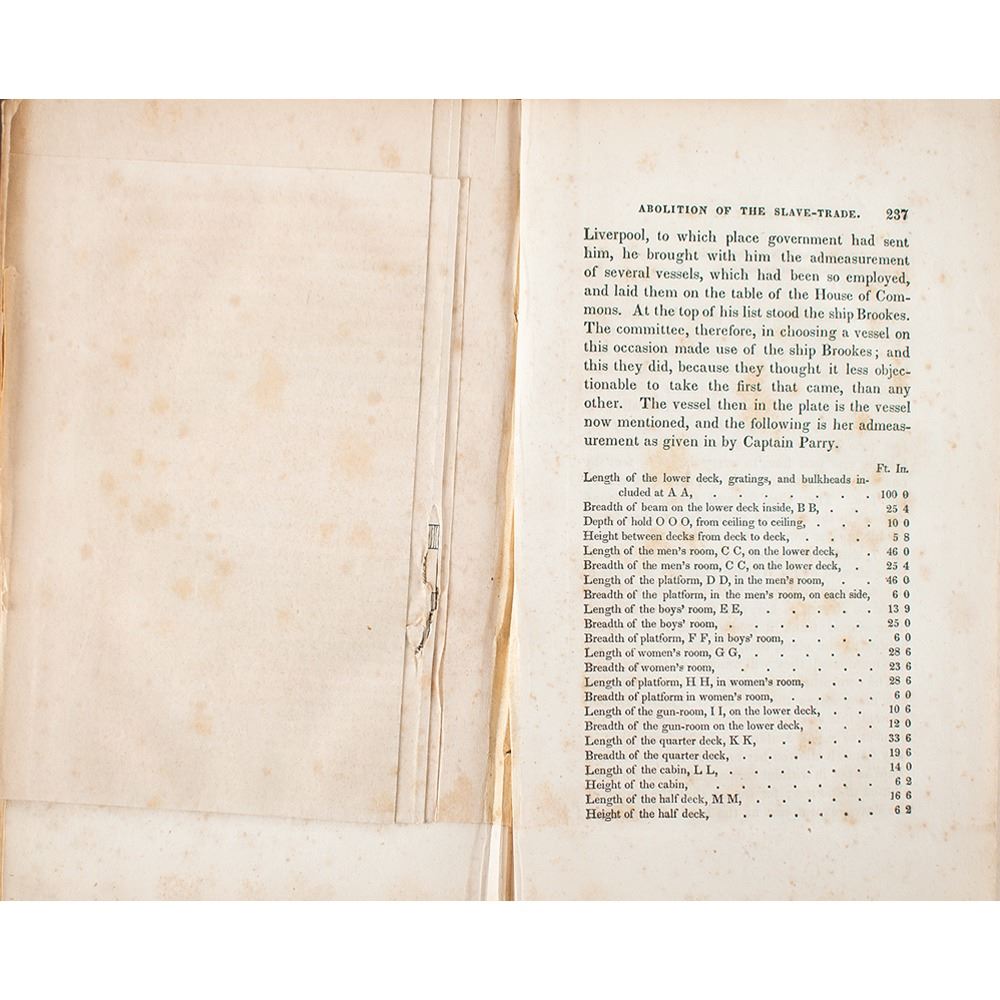 ABOLITION OF THE SLAVE-TRADE. 237
Liverpool, to which place government had sent
him, he brought with him the admeasurement
of several vessels, which had been so employed,
and laid them on the table of the House of Com-
mons. At the top of his list stood the ship Brookes.
The committee, therefore, in choosing a vessel on
this occasion made use of the ship Brookes; and
this they did, because they thought it less objec-
tionable to take the first that came, than any
other. The vessel then in the plate is the vessel
now mentioned, and the following is her admeas-
urement as given in by Captain Parry.
Ft. In.
Length of the lower deck, gratings, and bulkheads in-
cluded at A A, . . . . . . . 100 0
Breadth of beam on the lower deck inside, B B, . . 25 4
Depth of hold O O O, from ceiling to ceiling, . . . 10 0
Height between decks from deck to deck, . . . 5 8
Length of the men's room, C C, on the lower deck, . 46 0
Breadth of the men's room, C C, on the lower deck, . 25 4
Length of the platform, D D, in the men's room, . . 46 0
Breadth of the platform, in the men's room, on each side, 6 0
Length of the boys' room, E E, . . . . . 13 9
Breadth of the boys' room, . . . . . . 25 0
Breadth of platform, F F, in boys' room, . . . . 6 0
Length of women's room, G G, . . . . . 28 6
Breadth of women's room, . . . . . . 23 6
Length of platform, H H, in women's room, . . 28 6
Breadth of platform in women's room, . . . . 6 0
Length of the gun-room, I I, on the lower deck, . . 10 6
Breadth of the gun-room on the lower deck, . . . 12 0
Length of the quarter deck, K K, . . . . 33 6
Breadth of the quarter deck, . . . . . . 19 6
Length of the cabin, L L, . . . . . . 14 0
Height of the cabin, . . . . . . 6 2
Length of the half deck, M M, . . . . . 16 6
Height of the half deck, . . . . . . 6 2